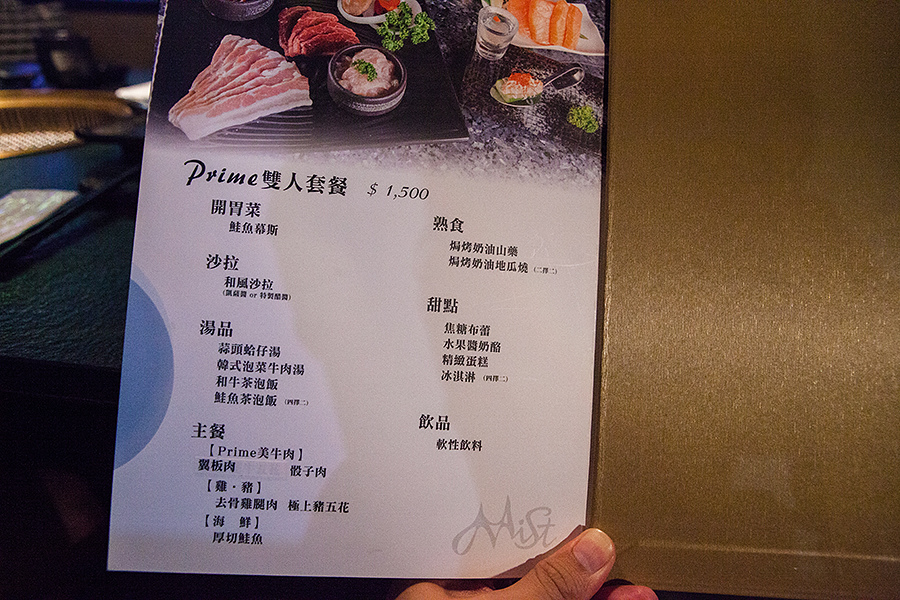 Prime雙人套餐 $ 1,500
開胃菜
鮭魚幕斯
沙拉
和風沙拉
(凱薩醬 or 特製醋醬)
湯品
蒜頭蛤仔湯
韓式泡菜牛肉湯
和牛茶泡飯
鮭魚茶泡飯 (四擇二)
主餐
【Prime美牛肉】
翼板肉 骰子肉
【雞·豬】
去骨雞腿肉 極上豬五花
【海 鮮】
厚切鮭魚
熟食
焗烤奶油山藥
焗烤奶油地瓜燒 (二擇二)
甜點
焦糖布蕾
水果醬奶酪
精緻蛋糕
冰淇淋 (四擇二)
飲品
軟性飲料
MiSt